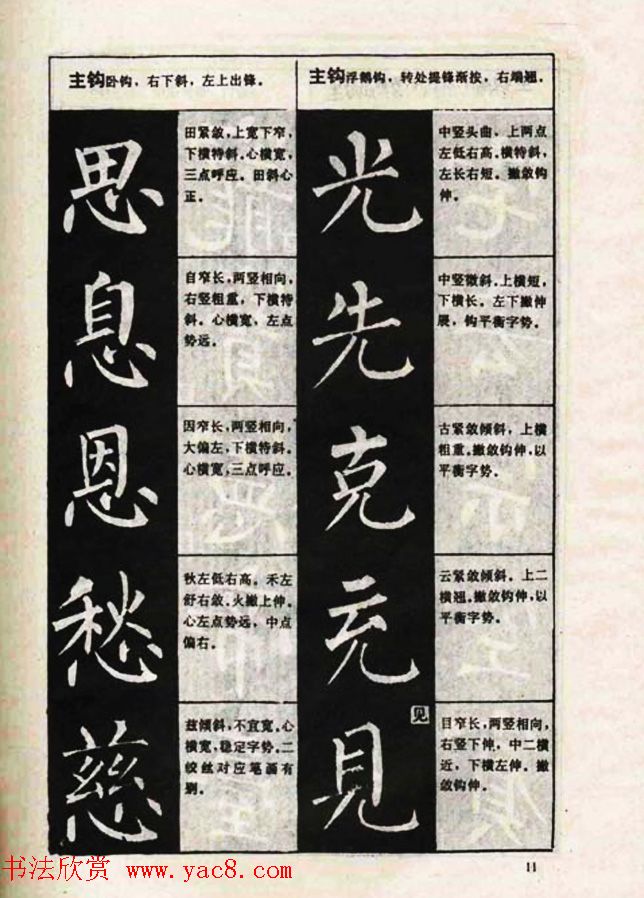 主钩卧钩，右下斜，左上出锋。
思
田紧敛，上宽下窄，
下横特斜。心横宽，
三点呼应。田斜心
正。
息
自窄长，两竖相向，
右竖粗重，下横特
斜。心横宽，左点
势远。
恩
因窄长，两竖相向，
大偏左，下横特斜。
心横宽，三点呼应。
愁
秋左低右高。禾左
舒右敛。火撇上伸。
心左点势远，中点
偏右。
慈
兹倾斜，不宜宽。心
横宽，稳定字势。二
绞丝对应笔画有
别。
主钩浮鹅钩，转处提锋渐按，右端翘。
光
中竖头曲，上两点
左低右高。横特斜，
左长右短。撇敛钩
伸。
先
中竖微斜。上横短，
下横长。左下撇伸
展，钩平衡字势。
克
古紧敛倾斜，上横
粗重。撇敛钩伸，以
平衡字势。
充
云紧敛倾斜。上二
横翘。撇敛钩伸，以
平衡字势。
見
见
目窄长，两竖相向，
右竖下伸，中二横
近，下横左伸。撇
敛钩伸。
书法欣赏 www.yac8.com
11